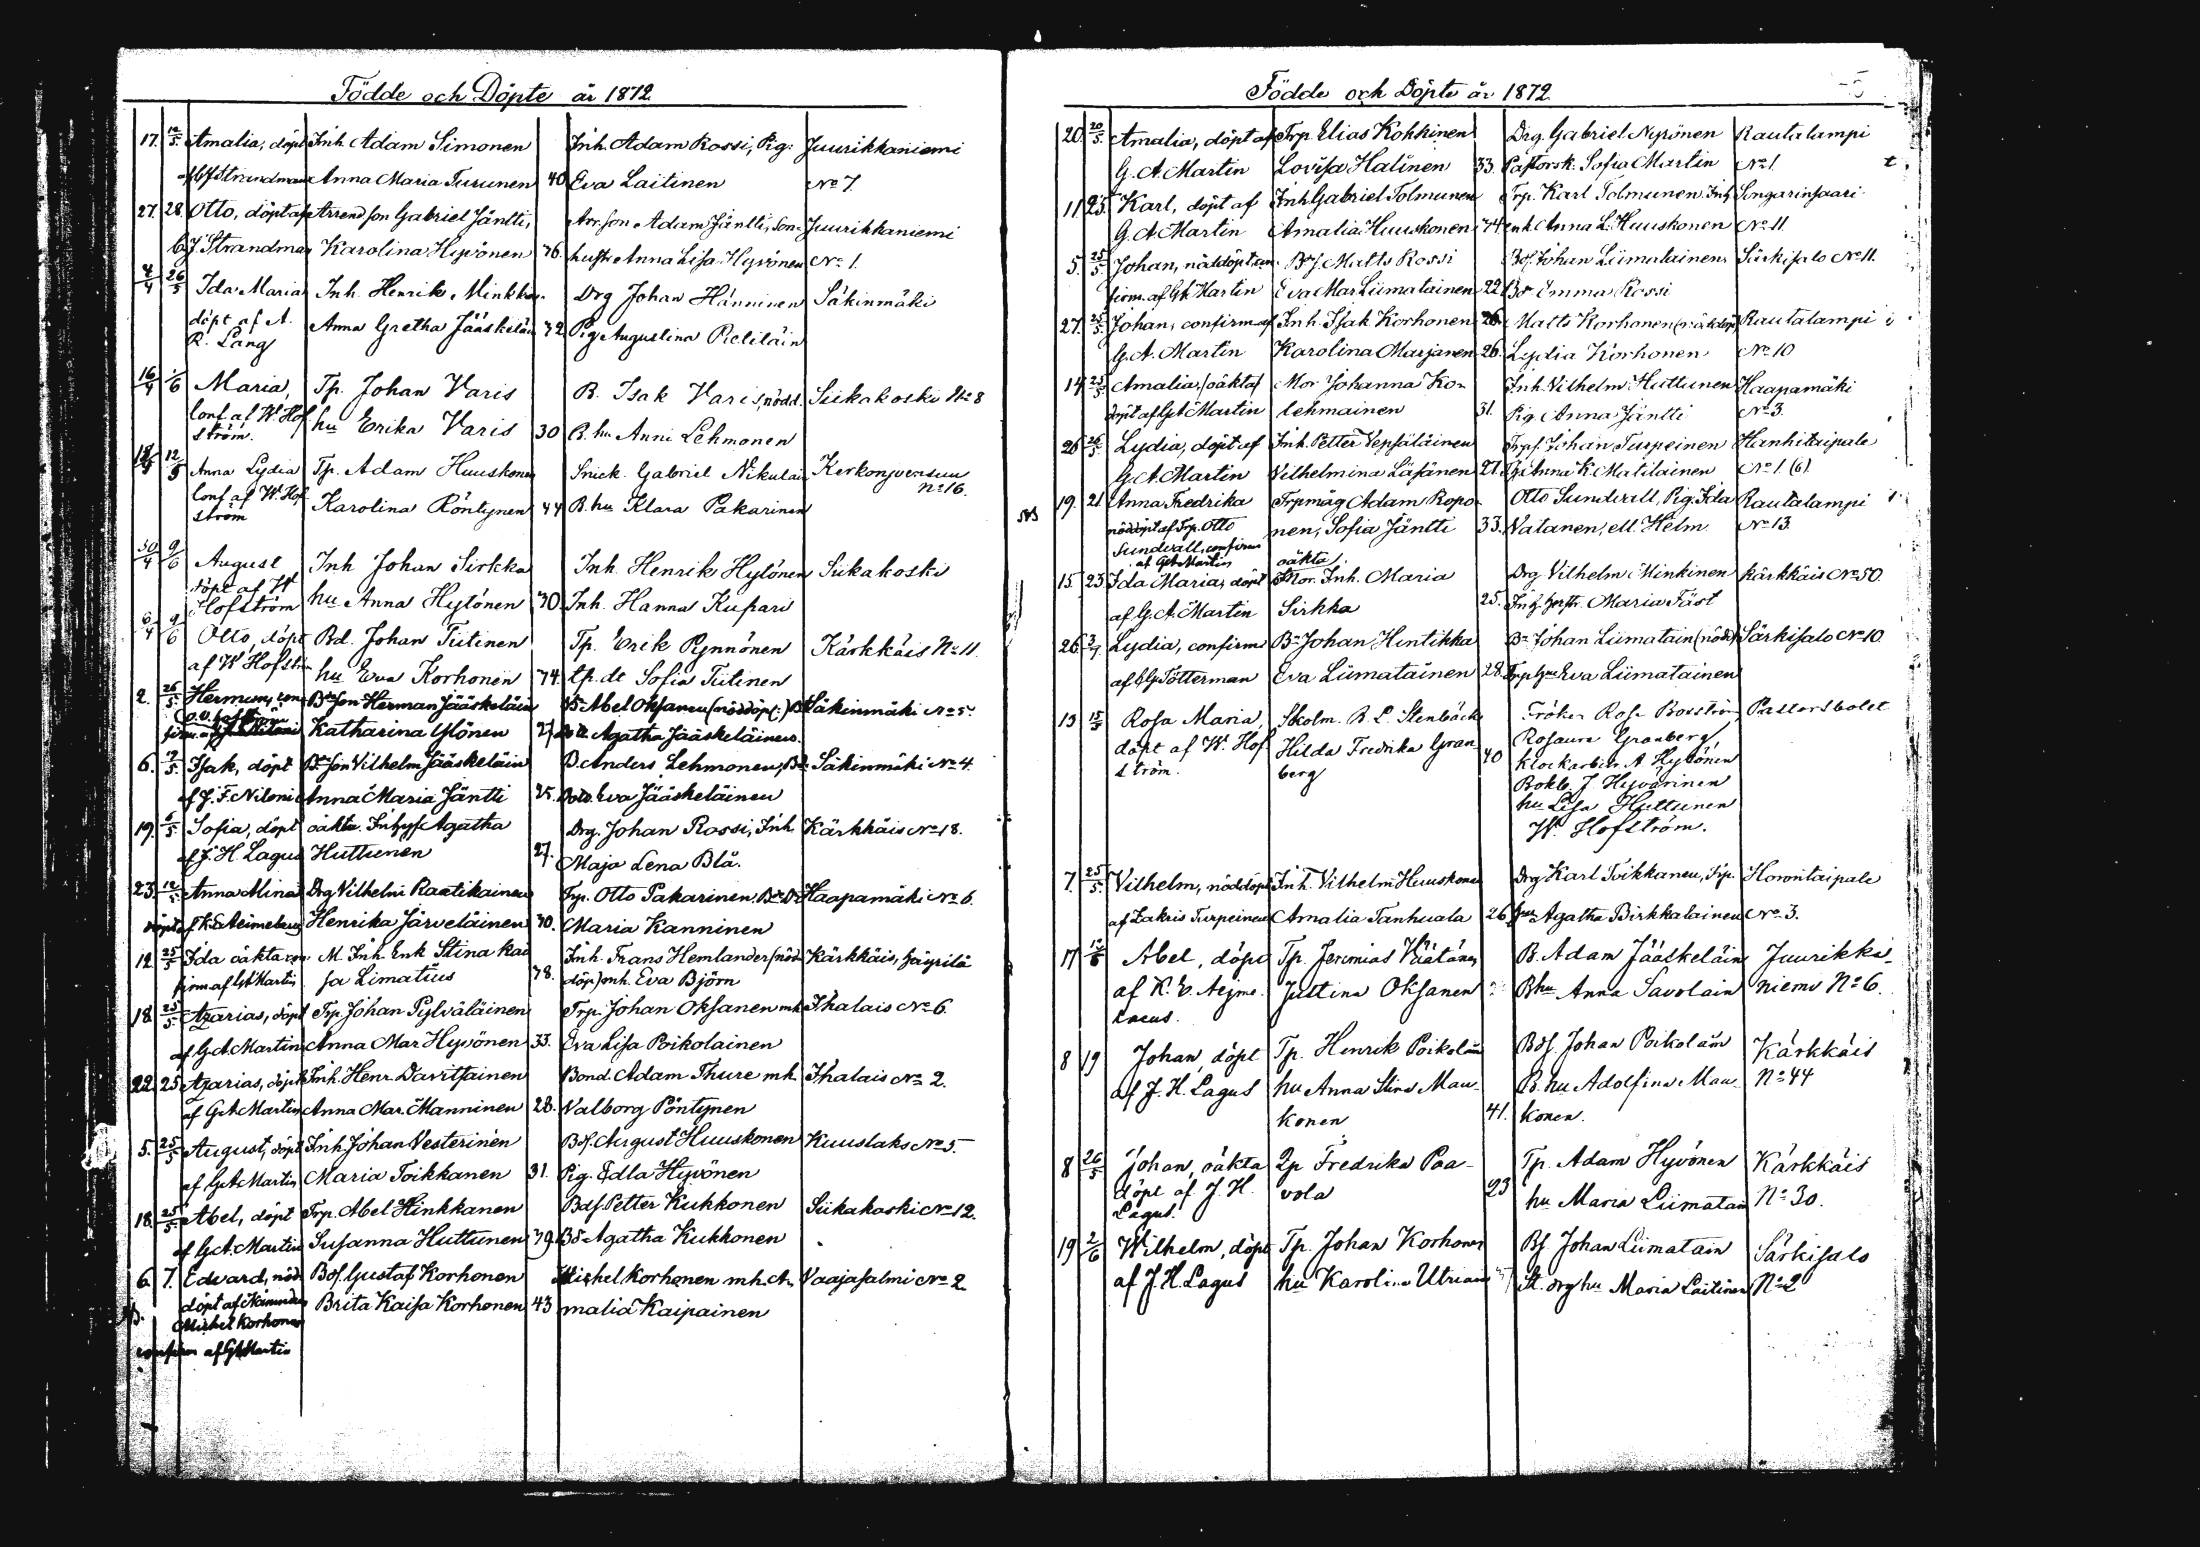 Födde och Döpte år 1872.
17. 12/5 Amalia, döpt Inh. Adam Simonen Inh. Adam Rossi, Pig: Juurikkaniemi
Strandman Anna Maria Turunen 40 Eva Laitinen No 7.
27. 28. Otto, döpt af Arrend son Gabriel Jäntti, Arr. son Adam Jäntti, Juurikkaniemi
Strandman Karolina Hyvönen 36. hustr Anna Lisa Hyvönen No 1.
4/4 26/5 Ida Maria Inh. Henrik Drg Johan Hänninen Säkinmäki
döpt af A. Anna Gretha Jääskeläin Pig Augustina
R. Lang
16/4 1/6 Maria, Tp. Johan Varis B. Isak Varis, nödd. Siikakoski No 8
Conf af W. Hof hu Erika Varis 30 B. hu Anni Lehmonen
ström.
12/5 Anna Lydia Tp. Adam Huuskonen Snick. Gabriel Nikulain
Conf af W. Hof Karolina Pöntynen 44 B. hu Klara Pakarinen No 16.
ström
30/4 9/6 August Inh Johan Sirkka Inh. Henrik Hytönen Siikakoski
döpt af W
Hofström hu Anna Hytönen Inh. Hanna Kupari
6/4 9/6 Otto, döpt Bd. Johan Tiitinen Tp. Erik Rynnönen Kärkkäis No 11.
af W Hofström hu Eva Korhonen 34. tp. dt Sofia Tiitinen
2. 26/5 Herman, con Bde son Herman Jääskeläin Bde Abel Oksanen (nöddöpt:) Säkinmäki No 5.
Katharina Ylönen 27 Agatha Jääskeläinen.
6. 19/5 Isak, döpt Bde son Vilhelm Jääskeläin B. Anders Lehmonen, Säkinmäki No 4.
af J. F. Niloni Anna Maria Jäntti 25. Eva Jääskeläinen
19. 5/5 Sofia, döpt oäkta. Agatha Drg. Johan Rossi, Inh. Kärkkäis No 18.
af J. H. Lagus Huttunen 27. Maja Lena Blå.
23. 12/5 Anna Mina Drg Vilhelm Raatikainen Trp. Otto Pakarinen. Haapamäki No 6.
Henrika Järveläinen 30. Maria Kanninen
12. 25/5 Ida oäkta con M Inh. Enk Stina Kai Inh. Frans Hemlander (nöd Kärkkäis,
firm af GA Martin sa Limatius 38. döp) mh. Eva Björn
18. 25/5 Azarias, döpt Trp. Johan Pylväläinen Trp. Johan Oksanen mh Ihalais No 6.
af G.A. Martin Anna Mar Hyvönen 33. Eva Lisa Poikolainen
22 25 Azarias, döpt Inh. Henr. Davitsainen Bond. Adam Thure mh. Ihalais No 2.
af G.A Martin Anna Mar. Manninen 28. Valborg Pöntynen
5. 25/5 August, döpt Inh. Johan Vesterinen Bds. August Huuskonen Kuuslaks No 5.
af G.A Martin Maria Toikkanen 31. Pig. Edla Hyvönen
18. 25/5 Abel, döpt Trp. Abel Hinkkanen Bds. Petter Kukkonen Siikakoski No 12.
af G.A. Martin Susanna Huttunen 39. Bd Agatha Kukkonen
6. 7. Edvard, nöd Bds. Gustaf Korhonen Michel Korhonen mh. A. Vaajasalmi No 2
döpt af Nämndem Brita Kaisa Korhonen 43 malia Kaipainen
Michel Korhonen
confirm af GA Martin
Födde och Döpte år 1872.
20. 20/5 Amalia, döpt af Trp. Elias Kohkinen Drg. Gabriel Nyrönen Rautalampi
G. A. Martin Lovisa Halinen 33. Pastorsk. Sofia Martin No 1.
11. Karl, döpt af Inh Gabriel Tolmunen Trp. Karl Tolmunen. Inh. Songarinsaari
G. A. Martin Amalia Huuskonen 34 Anna L. Huuskonen No 11.
5. 25/5 Johan, nöddöpt con Bds. Matts Rossi Bds. Johan Liimatainen Särkisalo No 11.
firm. af GA Martin Eva Mar Liimatainen 22 Bd Emma Rossi
27. 25/5 Johan, confirm af Inh. Isak Korhonen 26. Matts Korhonen (nöddöpt) Rautalampi
G. A. Martin Karolina Marjanen 26. Lydia Korhonen No 10
14. 25/5 Amalia, (oäkta) Mor Johanna Ko- Inh. Vilhelm Huttunen Haapamäki
döpt af GA Martin lehmainen 31. Pig. Anna Jäntti No 3.
26 26/5 Lydia, döpt af Inh. Petter Vepsäläinen Trps. Johan Turpeinen Hanhitaipale
G. A. Martin Vilhelmina Läsänen 21. Anna K. Matilainen No 1. (6).
19. 21. Anna Fredrika Trpmåg Adam Ropo- Otto Sundvall, Pig. Ida Rautalampi
nöddöpt af Trp. Otto nen, Sofia Jäntti 33. Vatanen, ell. Helm No 13.
Sundvall, confirm
af GA Martin oäkta.
15. 23. Ida Maria, döpt Mor. Inh. Maria Drg Vilhelm Minkinen Kärkkäis No 50.
af G. A. Martin Sirkka 25. Maria Fäst
26. Lydia, confirm Bn Johan Hintikka Bn Johan Liimatain (nödd) Särkisalo No 10.
af Tötterman Eva Liimatainen 28. Eva Liimatainen
13 15/5 Rosa Maria, Skolm. R. L. Stenbäck Fröken Rosa Bosström Pastorsbolet
döpt af W. Hof Hilda Fredrika Gran Rosaura Granberg
ström. berg 40 klockarbitr. A. Hytönen
Bokb. J. Hyvärinen
hu Lisa Huttunen
W. Hofström.
7. 25/5 Vilhelm, nöddöpt Inh. Vilhelm Huuskonen Drg Karl Toikkanen, Trp. Horontaipale
af Zakris Turpeinen Amalia Tanhuala 26. Agatha Birkkalainen No 3.
17 Abel, döpt Tp. Jeremias Väätänen B. Adam Jääskeläin Juurikka-
af K. E. Aejme- Justina Oksanen B hu Anna Savolain niemi No 6.
laeus.
8 19 Johan, döpt Tp. Henrik Poikolain Bds. Johan Poikolain Kärkkäis
af J. H. Lagus hu Anna Stina Mau- B. hu Adolfina Mau- No 44
konen 41. konen.
8 26/5 Johan, oäkta Fredrika Paa- Tp. Adam Hyvönen Kärkkäis
döpt af J. H. vola 23 hu Maria Liimatain No 30.
Lagus.
19 2/6 Wilhelm, döpt Tp. Johan Korhonen Bs. Johan Liimatain Särkisalo
af J. H. Lagus hu Karolina Utriain St. drg hu Maria Laitinen No 2